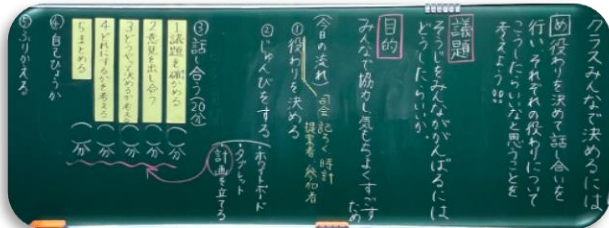 クラスみんなで決めるには
め 役わりを決めて話し合いを
行い、それぞれの役わりについて
こうしたらいいなと思うことを
考えよう。
議題
そうじをみんなががんばるには
どうしたらいいか
目的
みんなで協力し気もちよくすごす
ため
(今日の流れ)
①役わりを決める
司会 記ろく 時計
提案者 参加者
②じゅんびをする
・ホワイトボード
・タブレット
・計画を立てる
③話し合う(20分)
1議題を確かめる (分)
2意見を出し合う (分)
3どうやって決めるか考える (分)
4どれにするかを考える (分)
5まとめる (分)
④自こひょうか
⑤ふりかえる